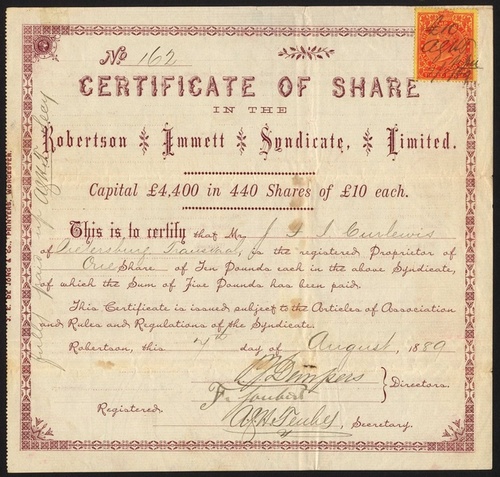 No 162
CERTIFICATE OF SHARE
IN THE
Robertson Immett Syndicate, Limited.
Capital £4,400 in 440 Shares of £10 each.
This is to certify that Mr J Curlewis
of Pietersburg Transvaal, is the registered Proprietor of
One Share of Ten Pounds each in the above Syndicate,
of which the Sum of Five Pounds has been paid.
This Certificate is issued subject to the Articles of Association
and Rules and Regulations of the Syndicate.
Robertson, this 4th day of August, 1889
Dempers
F. Joubert
Directors.
Registered.
Secretary.
fully paid up
PRINTERS, WORCESTER.
£10